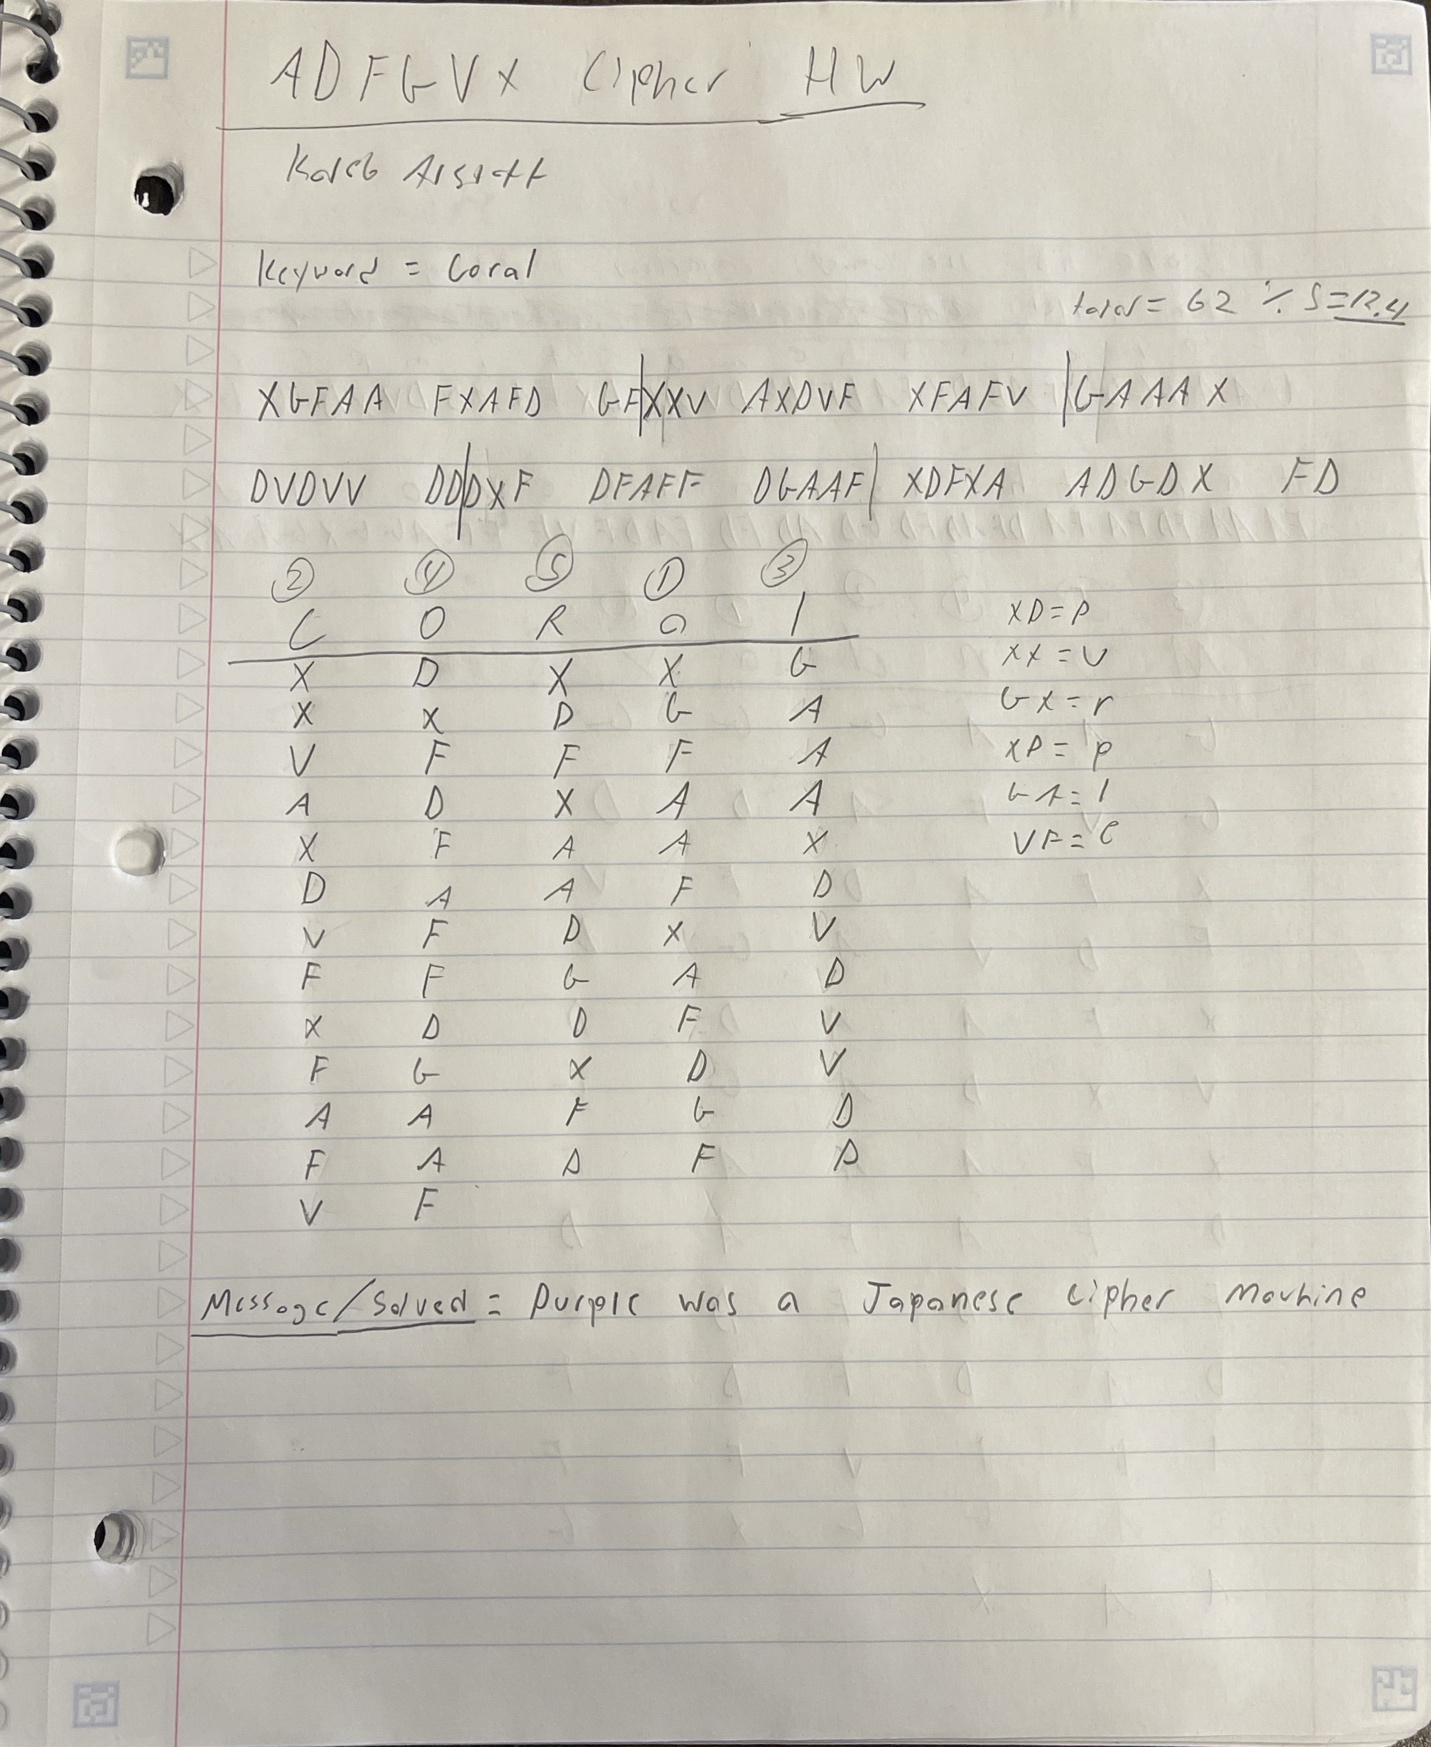 ADFGVX Cipher HW
Keyword = Coral
total = 62 ÷ 5 = 12.4
XGFAA FXAFD GF|XXV AXDVF XFAFV |GAAAX
DVDVV DD|DXF DFAFF DGAAF| XDFXA ADGDX FD
2 4 5 1 3
C O R a l
X D X X G
X X D G A
V F F F A
A D X A A
X F A A X
D A A F D
V F D X V
F F G A D
X D D F V
F G X D V
A A F G D
F A D F D
V F
XD = p
XX = U
GX = r
XD = p
GA = l
VF = e
Message/Solved = Purple was a Japanese Cipher Machine